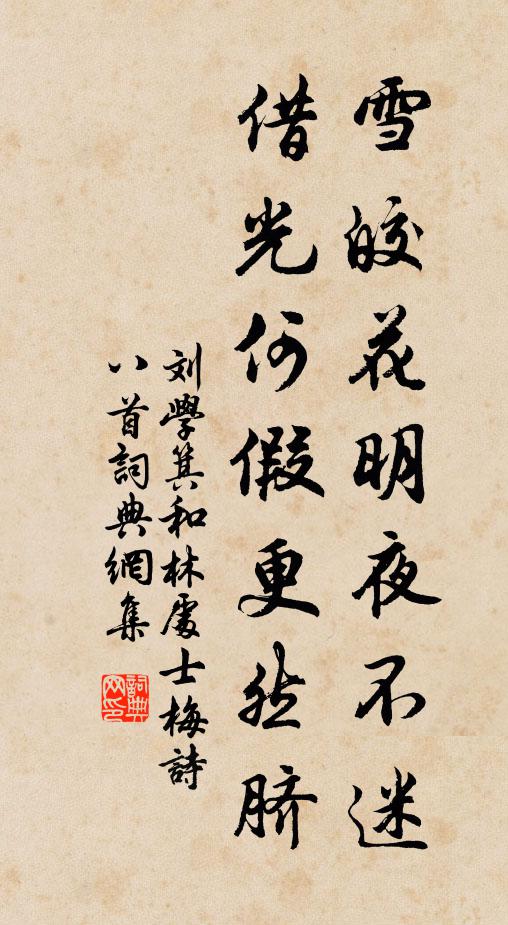 雪皎花明夜不迷
借光何假更然脐
刘學箕和林處士梅詩
八首詞典網集
詞典网印